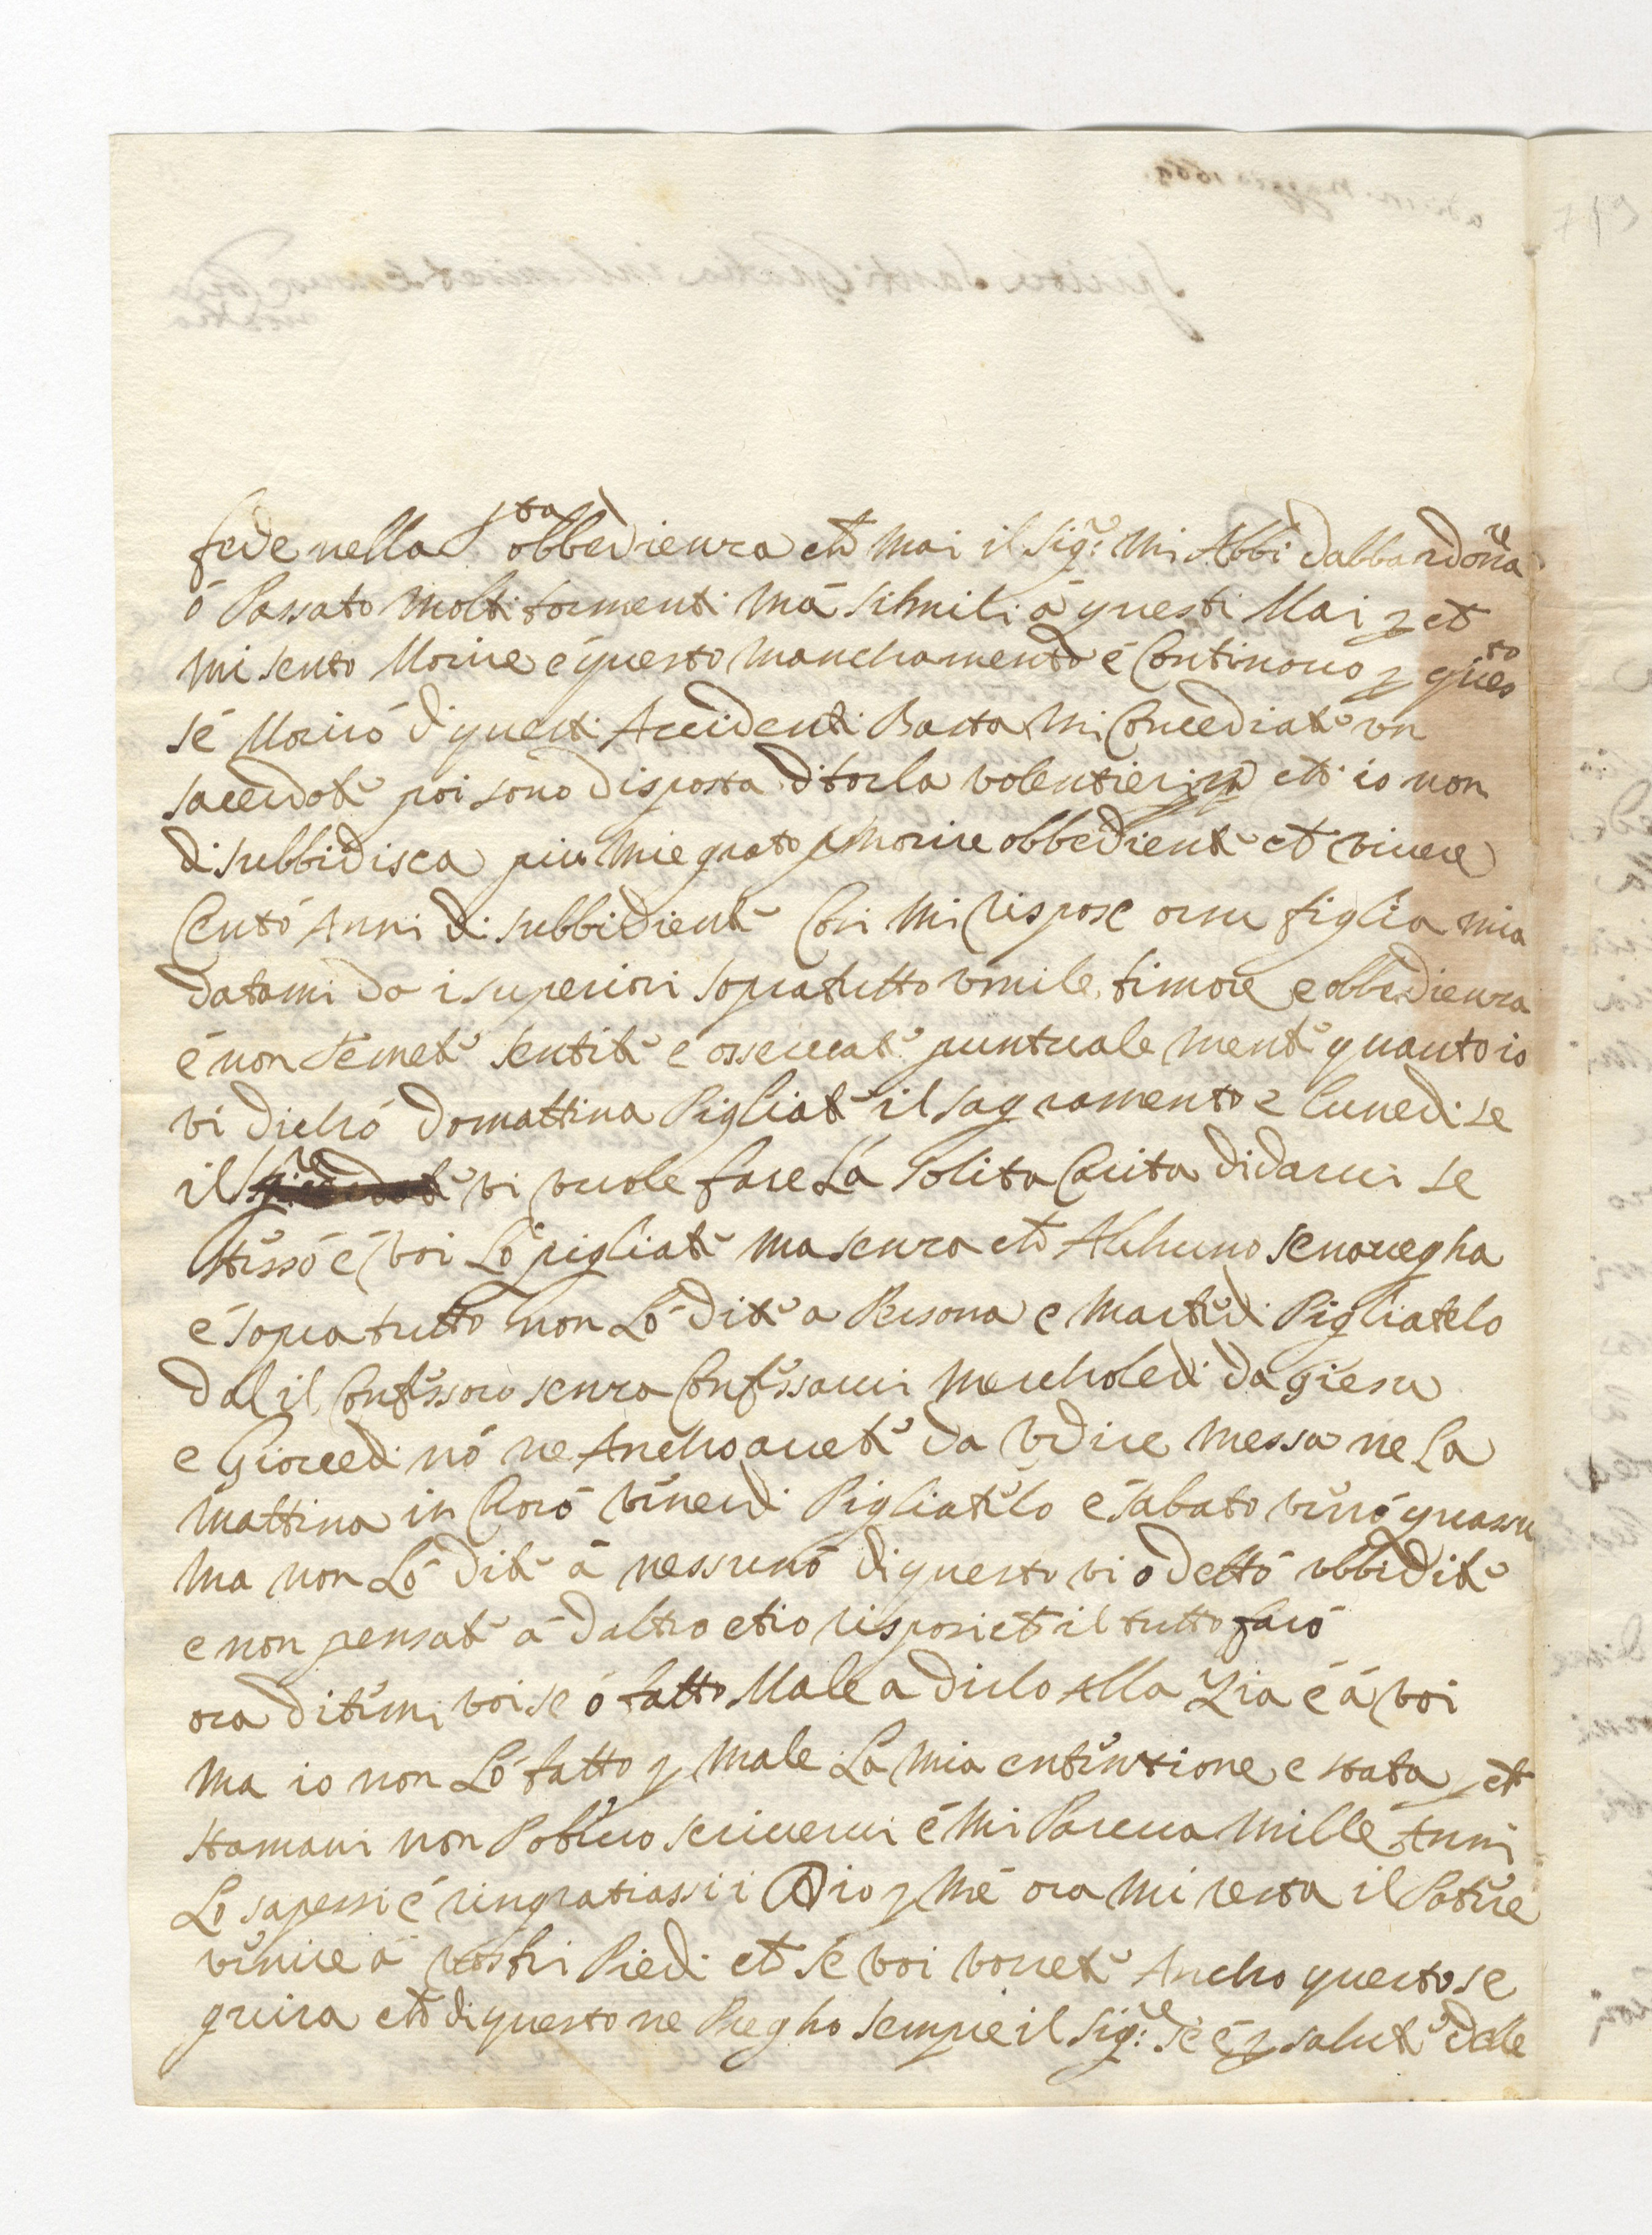 fede nella s.ta obbedienza ch̃ mai il Sig.re mi Abbi dabbandona
ó Passato molti tormenti má Simili á questi Mai p ch̃
mi sento Morire e questo manchamento é Continouo p questo
sé Moriró di questi Accidenti Basta Mi Concediate un
sacerdote poi sono disposta di torla volentieri p ch̃ io non
disubbidisca piu mie grato p morire obbediente ch̃ vivere
Cento Anni disubbidiente Cosi Mi rispose orsu figlia mia
datami da i superiori sopratutto umile, timore e obbedienza
é non temete sentite e osservate puntuale mente quanto io
vi dichó domattina Pigliate il sagramento e lunedi se
il Sig.re vi vuole fare La Solita Carita di darvi se
stessó é voi Ló pigliate ma senza ch̃ Alchuno se navegha
é sopra tutto non Ló dite a Persona e Martedi Pigliatelo
dal il Confessoro senza Confessarvi Mercholedi da Giesu
e Giovedi nó ne Ancho avete da Udire Messa ne La
mattina in Coró venerdi Pigliatelo é sabato verró quassu
ma non Ló dite á nessunó di questo vi o dettó ubbidite
e non pensate á daltro et io risposi ch̃ il tutto faró
ora ditemi voi se ó fatto Male a dirlo Alla Zia é á voi
ma io non Ló fatto p male La mia entintione e stata p ch̃
stamani non Potevo scrivervi é Mi Pareva Mille Anni
Ló sapessi é ringratiassi i Dio p mé ora mi resta il Potere
venire á vostri Piedi ch̃ sé voi vorrete Ancho questo se
guira ch̃ di questo ne Pregho sempre il Sig.re sé é p salute delle